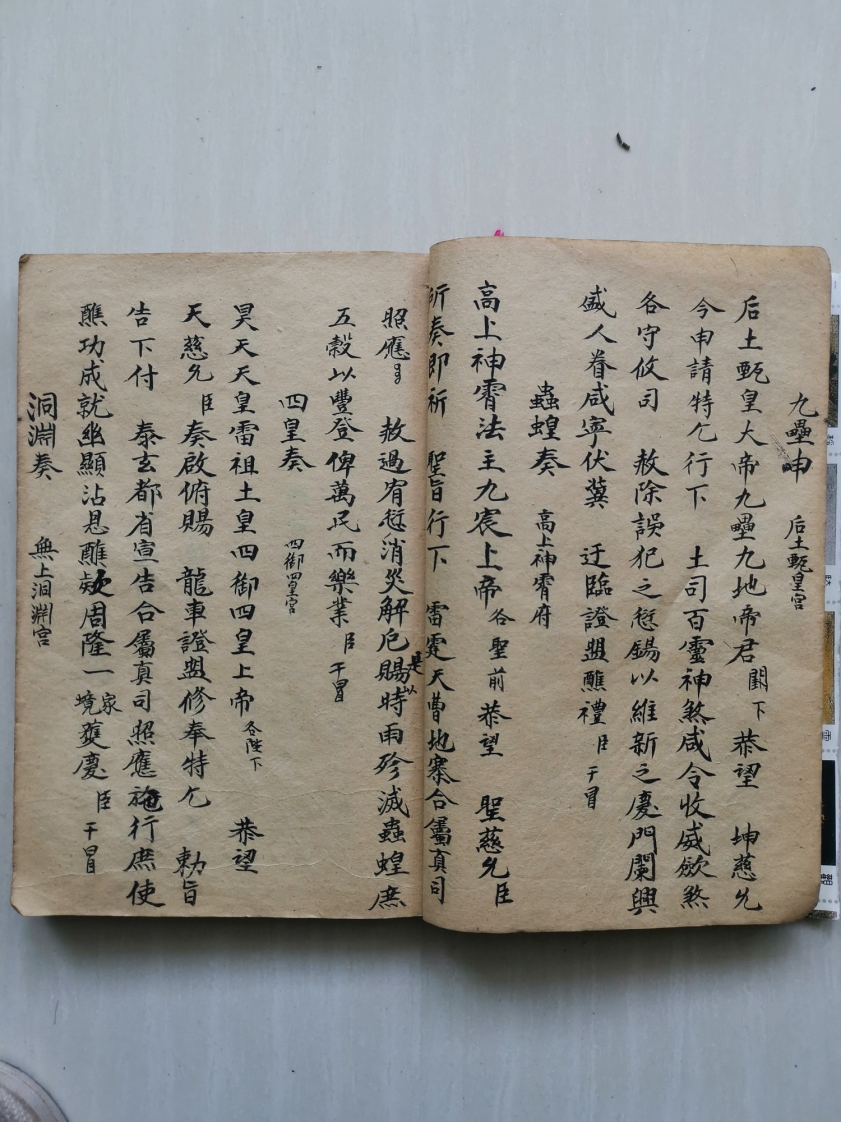 九壘申 后土甄皇宮
后土甄皇大帝九壘九地帝君 闕下 恭望 坤慈允
今申請特乞行下 土司百靈神煞咸令收威歛煞
各守攸司 赦除誤犯之愆錫以維新之慶門闌興
盛人眷咸寧伏冀 迂臨證盟醮禮 臣 干冒
蟲蝗奏 高上神霄府
高上神霄法主九宸上帝 各聖前 恭望 聖慈允臣
所奏即祈 聖旨行下 雷霆天曹地寨合屬真司
照應 是以 赦過宥愆消災解厄賜時雨殄滅蟲蝗庶
五穀以豐登俾萬民而樂業 臣 干冒
四皇奏 四御四皇宮
昊天天皇雷祖土皇四御四皇上帝 各陛下 恭望
天慈允 臣 奏啟俯賜 龍車證盟修奉特乞 勅旨
告下付 泰玄都省宣告合屬真司照應施行庶使
醮功成就幽顯沾恩醮款周隆一家境獲慶 臣 干冒
洞淵奏 無上洞淵宮